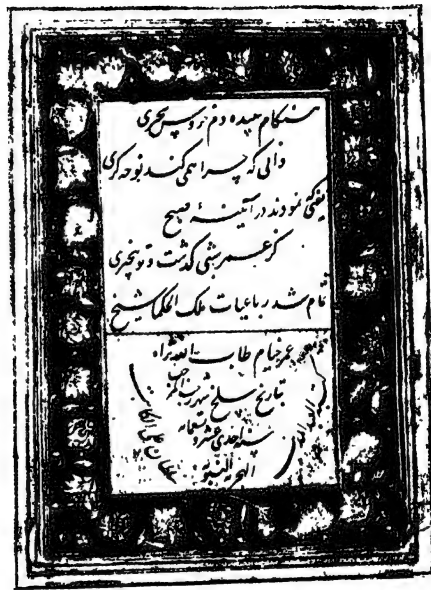 هنگام سپیده دم خروس سحری
دانی که چرا همی کند نوحه گری
یعنی نمودند در آیینهٔ صبح
کز عمر شبی گذشت و تو بیخبری
تمام شد رباعیات ملک الحکما شیخ
عمر خیام طاب الله ثراه
بتاریخ سلخ شهر رجب المرجب
سنه احدی عشر و تسعمائه
الهجریه النبویه
سلطان علی الکاتب